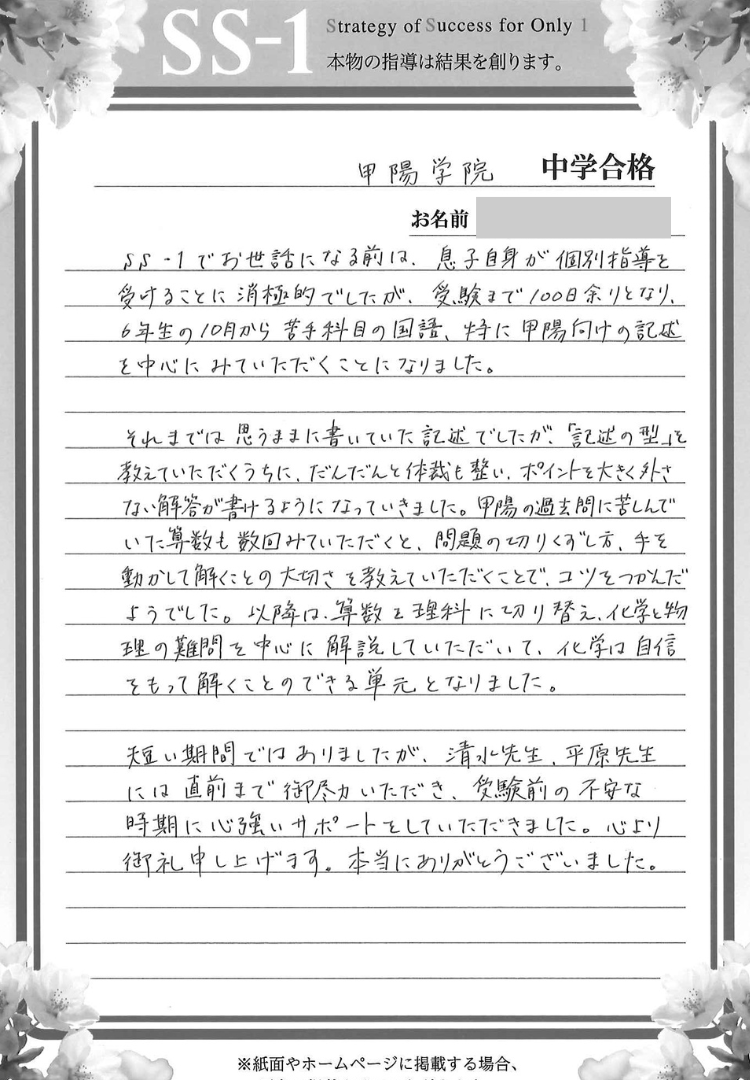 SS-1
Strategy of Success for Only 1
本物の指導は結果を創ります。
甲陽学院 中学合格
お名前
SS-1でお世話になる前は、息子自身が個別指導を
受けることに消極的でしたが、受験まで100日余りとなり、
6年生の10月から苦手科目の国語、特に甲陽向けの記述
を中心にみていただくことになりました。
それまでは思うままに書いていた記述でしたが、「記述の型」を
教えていただくうちに、だんだんと体裁も整い、ポイントを大きく外さ
ない解答が書けるようになっていきました。甲陽の過去問に苦しんで
いた算数も数回みていただくと、問題の切りくずし方、手を
動かして解くことの大切さを教えていただくことで、コツをつかんだ
ようでした。以降は、算数を理科に切り替え、化学と物
理の難問を中心に解説していただいて、化学は自信
をもって解くことのできる単元となりました。
短い期間ではありましたが、清水先生、平原先生
には直前まで御尽力いただき、受験前の不安な
時期に心強いサポートをしていただきました。心より
御礼申し上げます。本当にありがとうございました。
※紙面やホームページに掲載する場合、